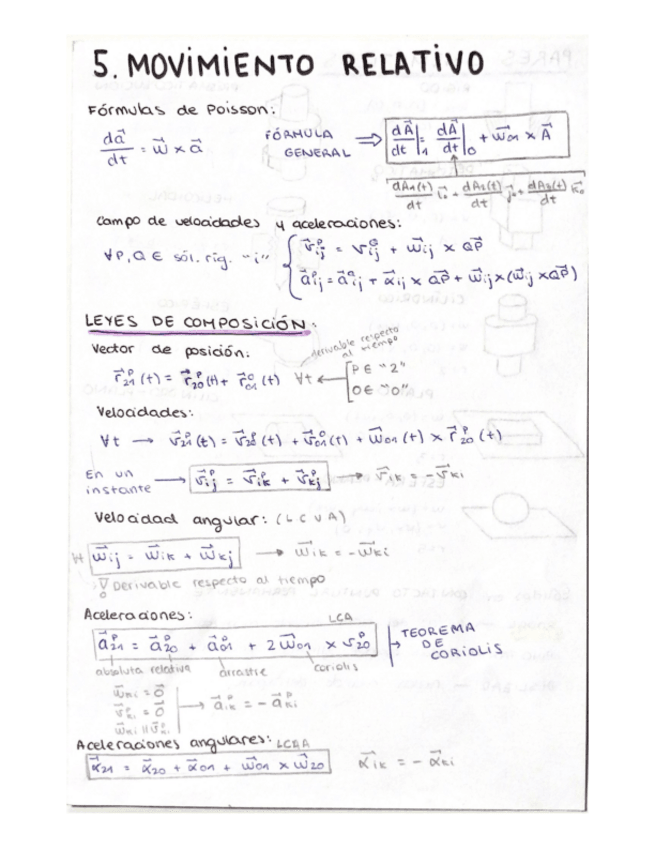 5. MOVIMIENTO RELATIVO
Fórmulas de Poisson:
da⃗/dt = w⃗ × a⃗
FÓRMULA GENERAL ⟹ dA⃗/dt|₁ = dA⃗/dt|₀ + w⃗₀₁ × A⃗
dA₁(t)/dt i⃗₀ + dA₂(t)/dt j⃗₀ + dA₃(t)/dt k⃗₀
Campo de velocidades y aceleraciones:
∀P,Q ∈ sól. rig. "i"
v⃗ᴾij = v⃗Qij + w⃗ij × QP⃗
a⃗ᴾij = a⃗Qij + α⃗ij × QP⃗ + w⃗ij × (w⃗ij × QP⃗)
LEYES DE COMPOSICIÓN:
derivable respecto
al tiempo
Vector de posición:
r⃗ᴾ₂₁(t) = r⃗ᴾ₂₀(t) + r⃗ᴼ₀₁(t) ∀t ← [P ∈ "2"
O ∈ "0"
Velocidades:
∀t → v⃗ᴾ₂₁(t) = v⃗ᴾ₂₀(t) + v⃗ᴼ₀₁(t) + w⃗₀₁(t) × r⃗ᴾ₂₀(t)
En un instante → v⃗ᴾij = v⃗ᴾik + v⃗ᴾkj → v⃗ik = -v⃗ki
Velocidad angular: (LCVA)
∀t w⃗ij = w⃗ik + w⃗kj → w⃗ik = -w⃗ki
Derivable respecto al tiempo
Aceleraciones:
LCA
a⃗ᴾ₂₁ = a⃗ᴾ₂₀ + a⃗ᴾ₀₁ + 2w⃗₀₁ × v⃗ᴾ₂₀ → TEOREMA DE CORIOLIS
absoluta relativa arrastre coriolis
w⃗ki = 0⃗
v⃗ᴾki = 0⃗ → a⃗ᴾik = -a⃗ᴾki
w⃗ki || v⃗ᴾki
Aceleraciones angulares: LCAA
α⃗₂₁ = α⃗₂₀ + α⃗₀₁ + w⃗₀₁ × w⃗₂₀ α⃗ik = -α⃗ki